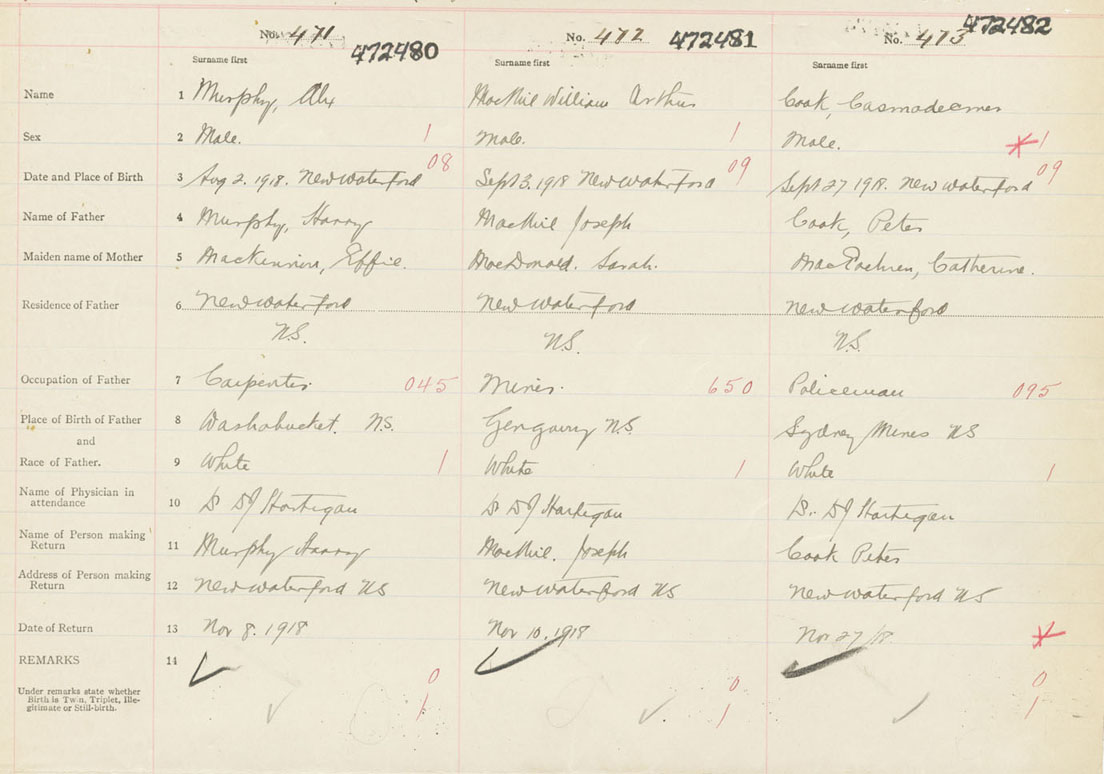 No. 471 472480 No. 472 472481 No. 473 472482
Surname first Surname first Surname first
Name 1 Murphy, Alex MacNeil William Arthur Cook,
Sex 2 Male. 1 Male. 1 Male. 1
08 09 09
Date and Place of Birth 3 Aug 2. 1918. New Waterford Sept 3. 1918 New Waterford Sept 27 1918. New Waterford
Name of Father 4 Murphy, Harry MacNeil Joseph Cook, Peter
Maiden name of Mother 5 MacKinnon, Effie. MacDonald. Sarah. MacEachren, Catherine.
Residence of Father 6 New Waterford New Waterford New Waterford
N.S. N.S. N.S.
Occupation of Father 7 Carpenter. 045 Miner. 650 Policeman 095
Place of Birth of Father 8 Washabucket. N.S. N.S. Sydney Mines NS
and
Race of Father. 9 White 1 White 1 White 1
Name of Physician in
attendance 10 Dr DJ Hartigan Dr DJ Hartigan Dr. DJ Hartigan
Name of Person making
Return 11 Murphy Harry MacNeil. Joseph Cook Peter
Address of Person making
Return 12 New Waterford NS New Waterford NS New Waterford NS
Date of Return 13 Nov 8. 1918 Nov 10. 1918 Nov 27/18
REMARKS 14
0 0 0
Under remarks state whether
Birth is Twin, Triplet, Ille-
gitimate or Still-birth.
1 1 1